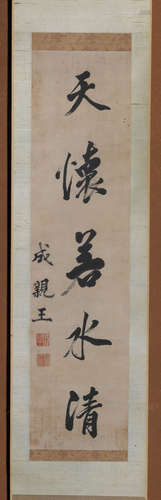 天懷若水清
成親王